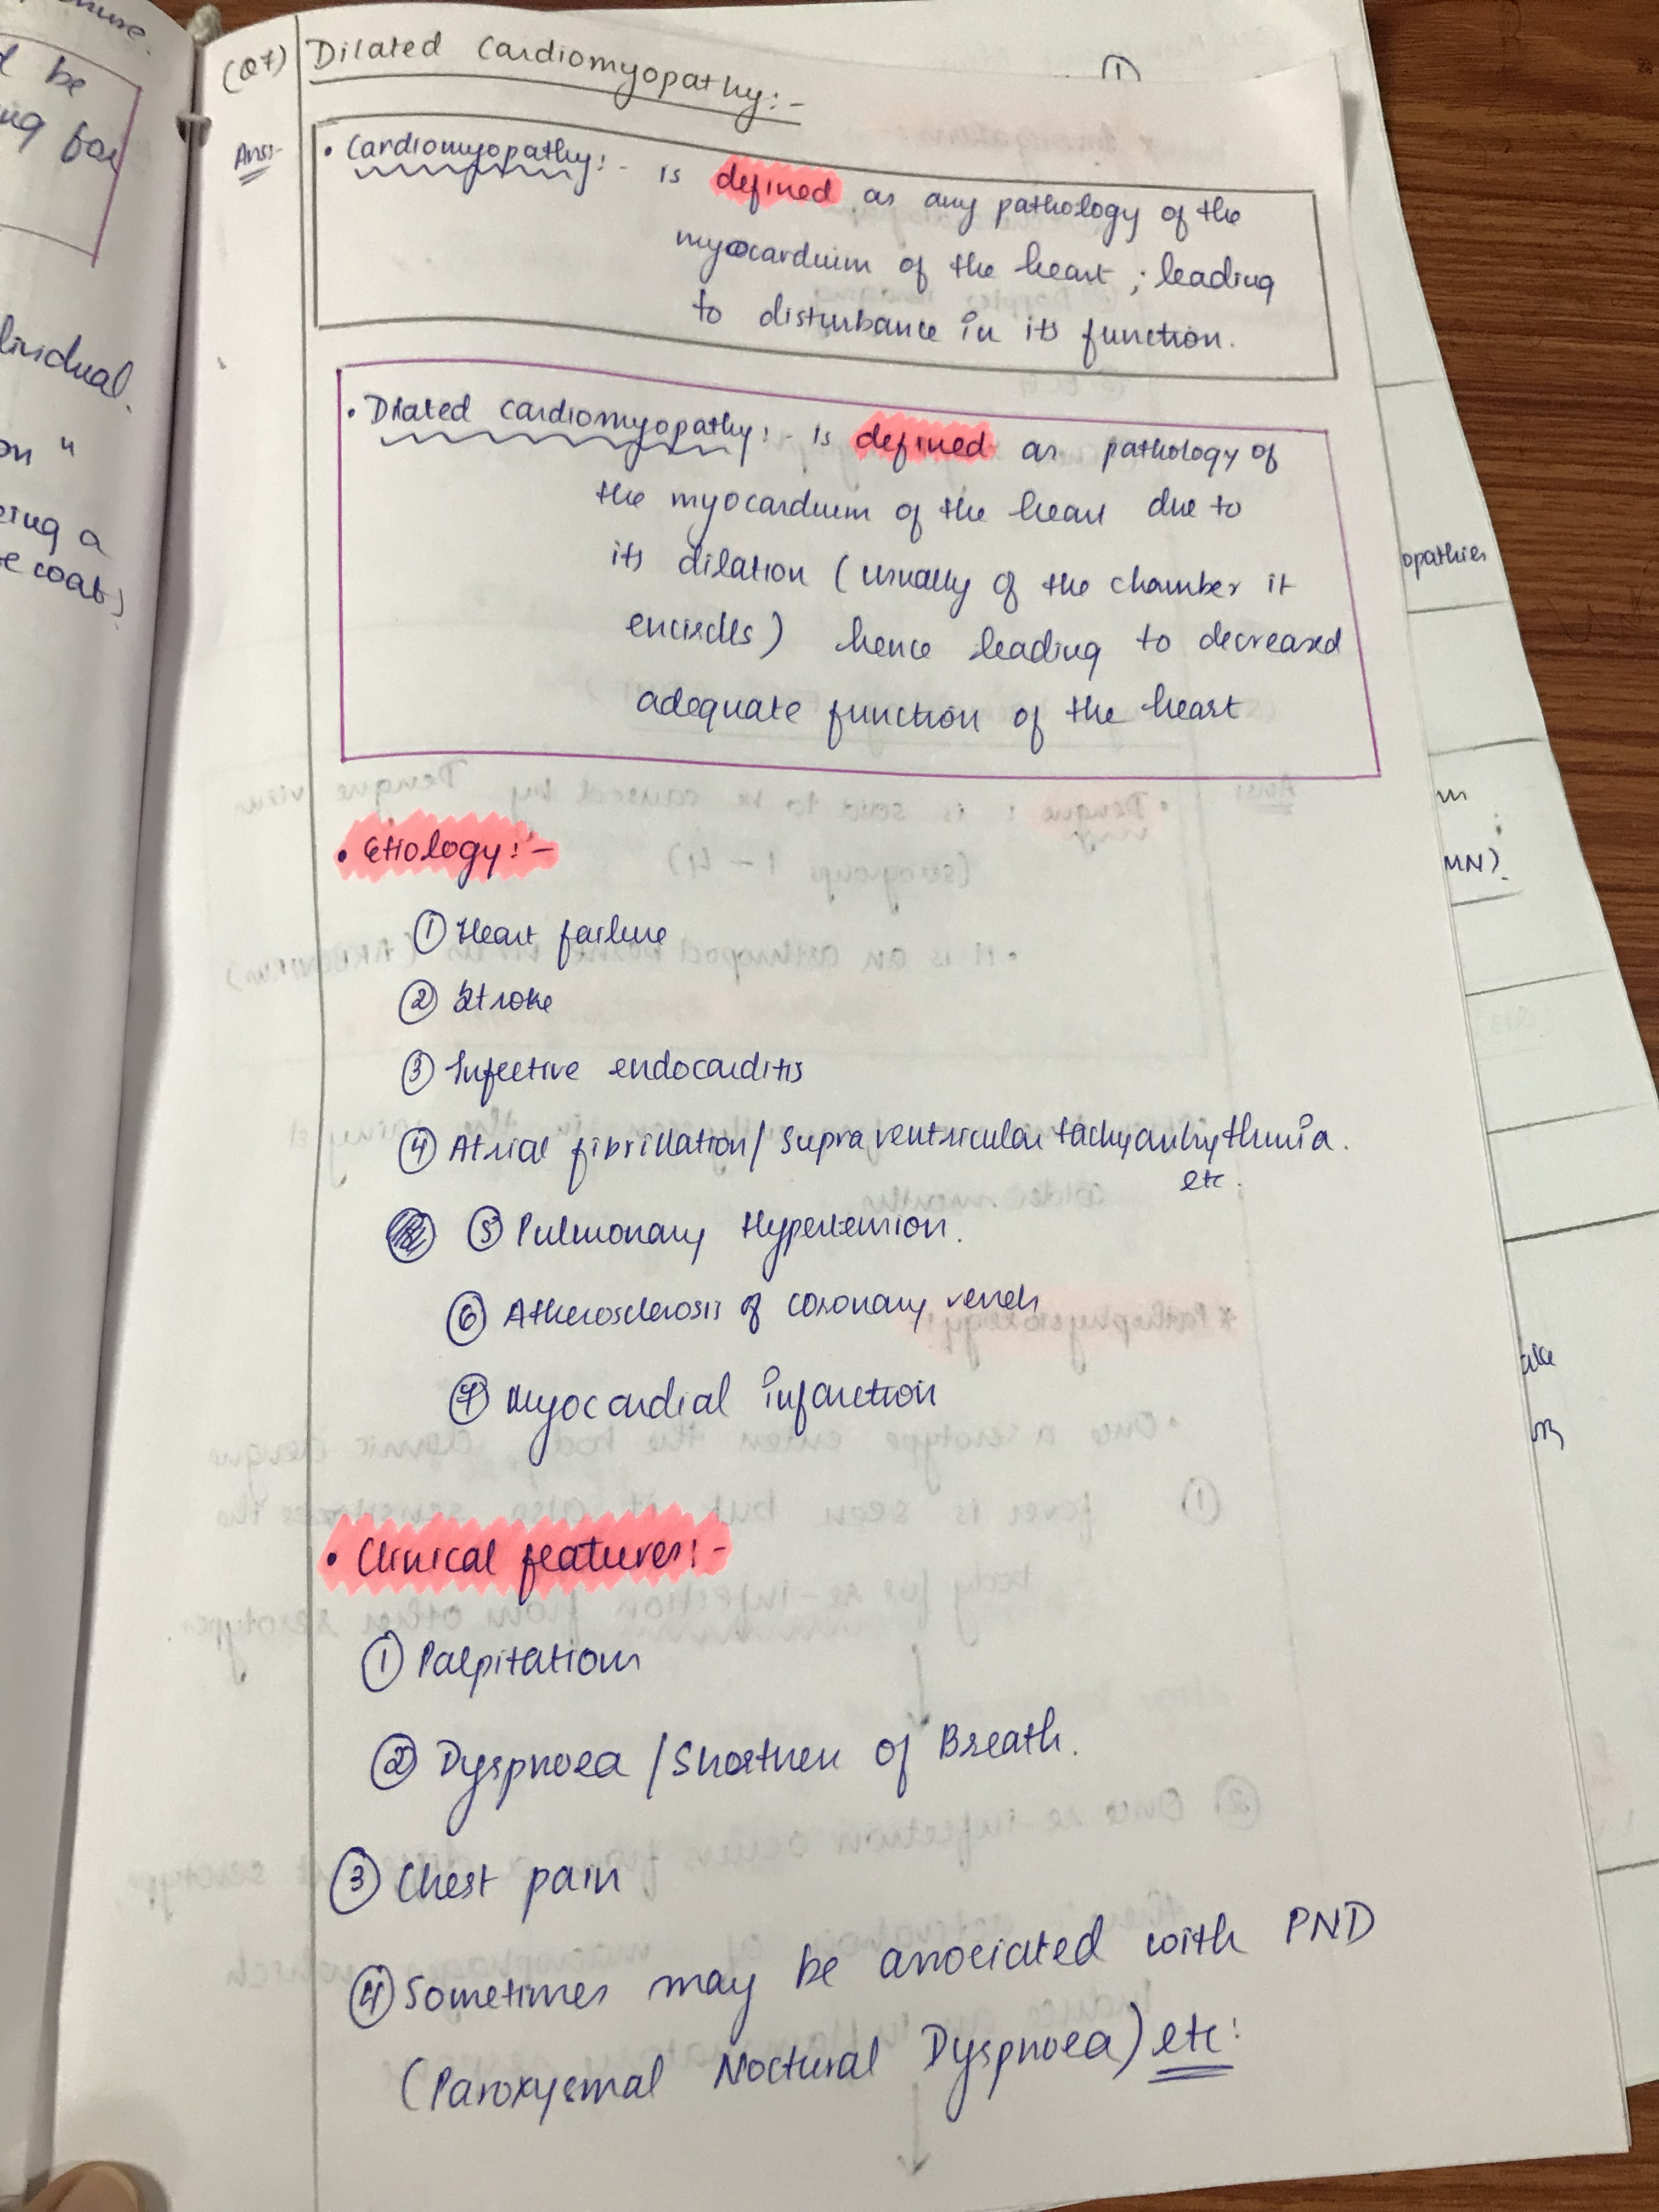 ure.
d be
ng for
dividual.
on "
ering a
e coat)
(Q7) Dilated Cardiomyopathy:-
①
Ans:-
• Cardiomyopathy:- is defined as any pathology of the
myocardium of the heart ; leading
to disturbance in its function.
• Dilated cardiomyopathy:- is defined as pathology of
the myocardium of the heart due to
its dilation (usually of the chamber it
encircles) hence leading to decreased
adequate function of the heart
• Etiology:-
① Heart failure
② Stroke
③ Infective endocarditis
④ Atrial fibrillation/ Supraventricular tachyarrhythmia.
etc.
⑤ Pulmonary Hypertension.
⑥ Atherosclerosis of coronary vessels
⑦ Myocardial infarction
• Clinical features:-
① Palpitations
② Dyspnoea / Shortness of Breath.
③ Chest pain
④ Sometimes may be associated with PND
(Paroxysmal Noctural Dyspnoea) etc.
opathies
MN).